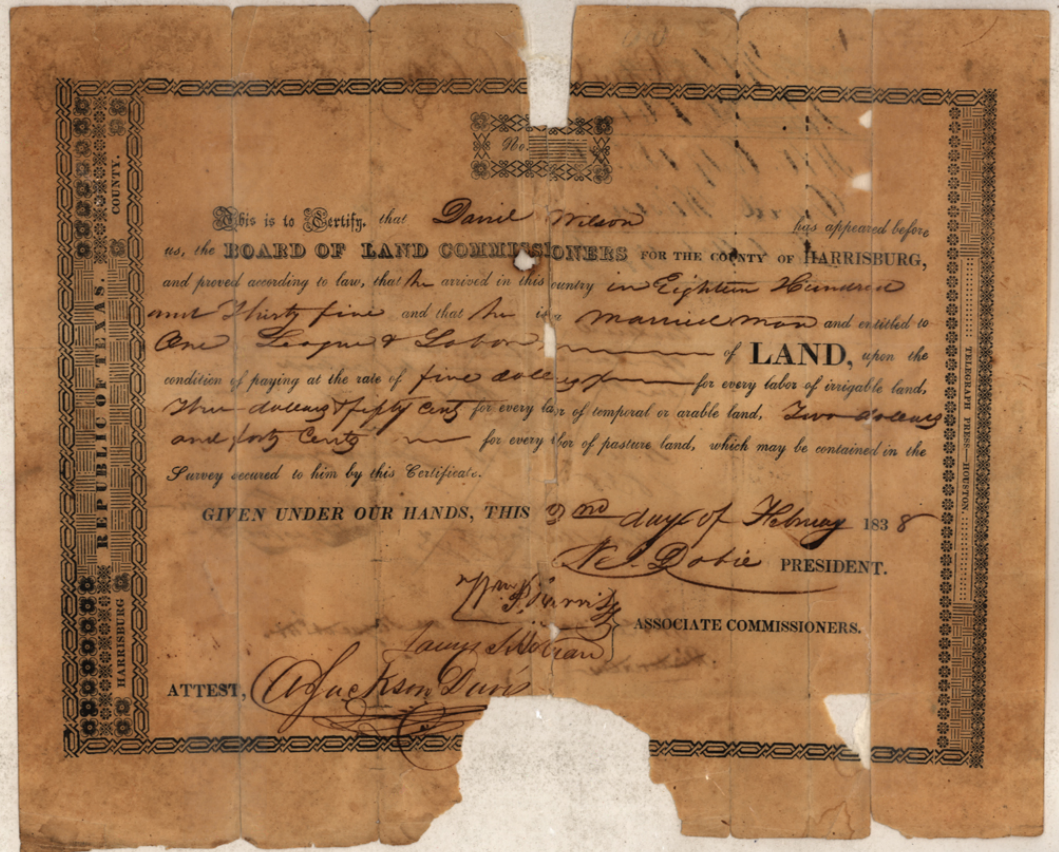 No.
This is to Certify, that Daniel Wilson has appeared before
us, the BOARD OF LAND COMMISSIONERS FOR THE COUNTY OF HARRISBURG,
and proved according to law, that he arrived in this country in Eighteen Hundred
and Thirty five and that he is a married man and entitled to
One League & Labor of LAND, upon the
condition of paying at the rate of five dollars for every labor of irrigable land,
Three dollars & fifty Cents for every labor of temporal or arable land, Two dollars
and forty Cents for every labor of pasture land, which may be contained in the
Survey secured to him by this Certificate.
GIVEN UNDER OUR HANDS, THIS 3rd day of February 1838
Dobie PRESIDENT.
Wm
ASSOCIATE COMMISSIONERS.
James
ATTEST, A Jackson Davis
HARRISBURG COUNTY.
REPUBLIC OF TEXAS.
TELEGRAPH PRESS—HOUSTON.